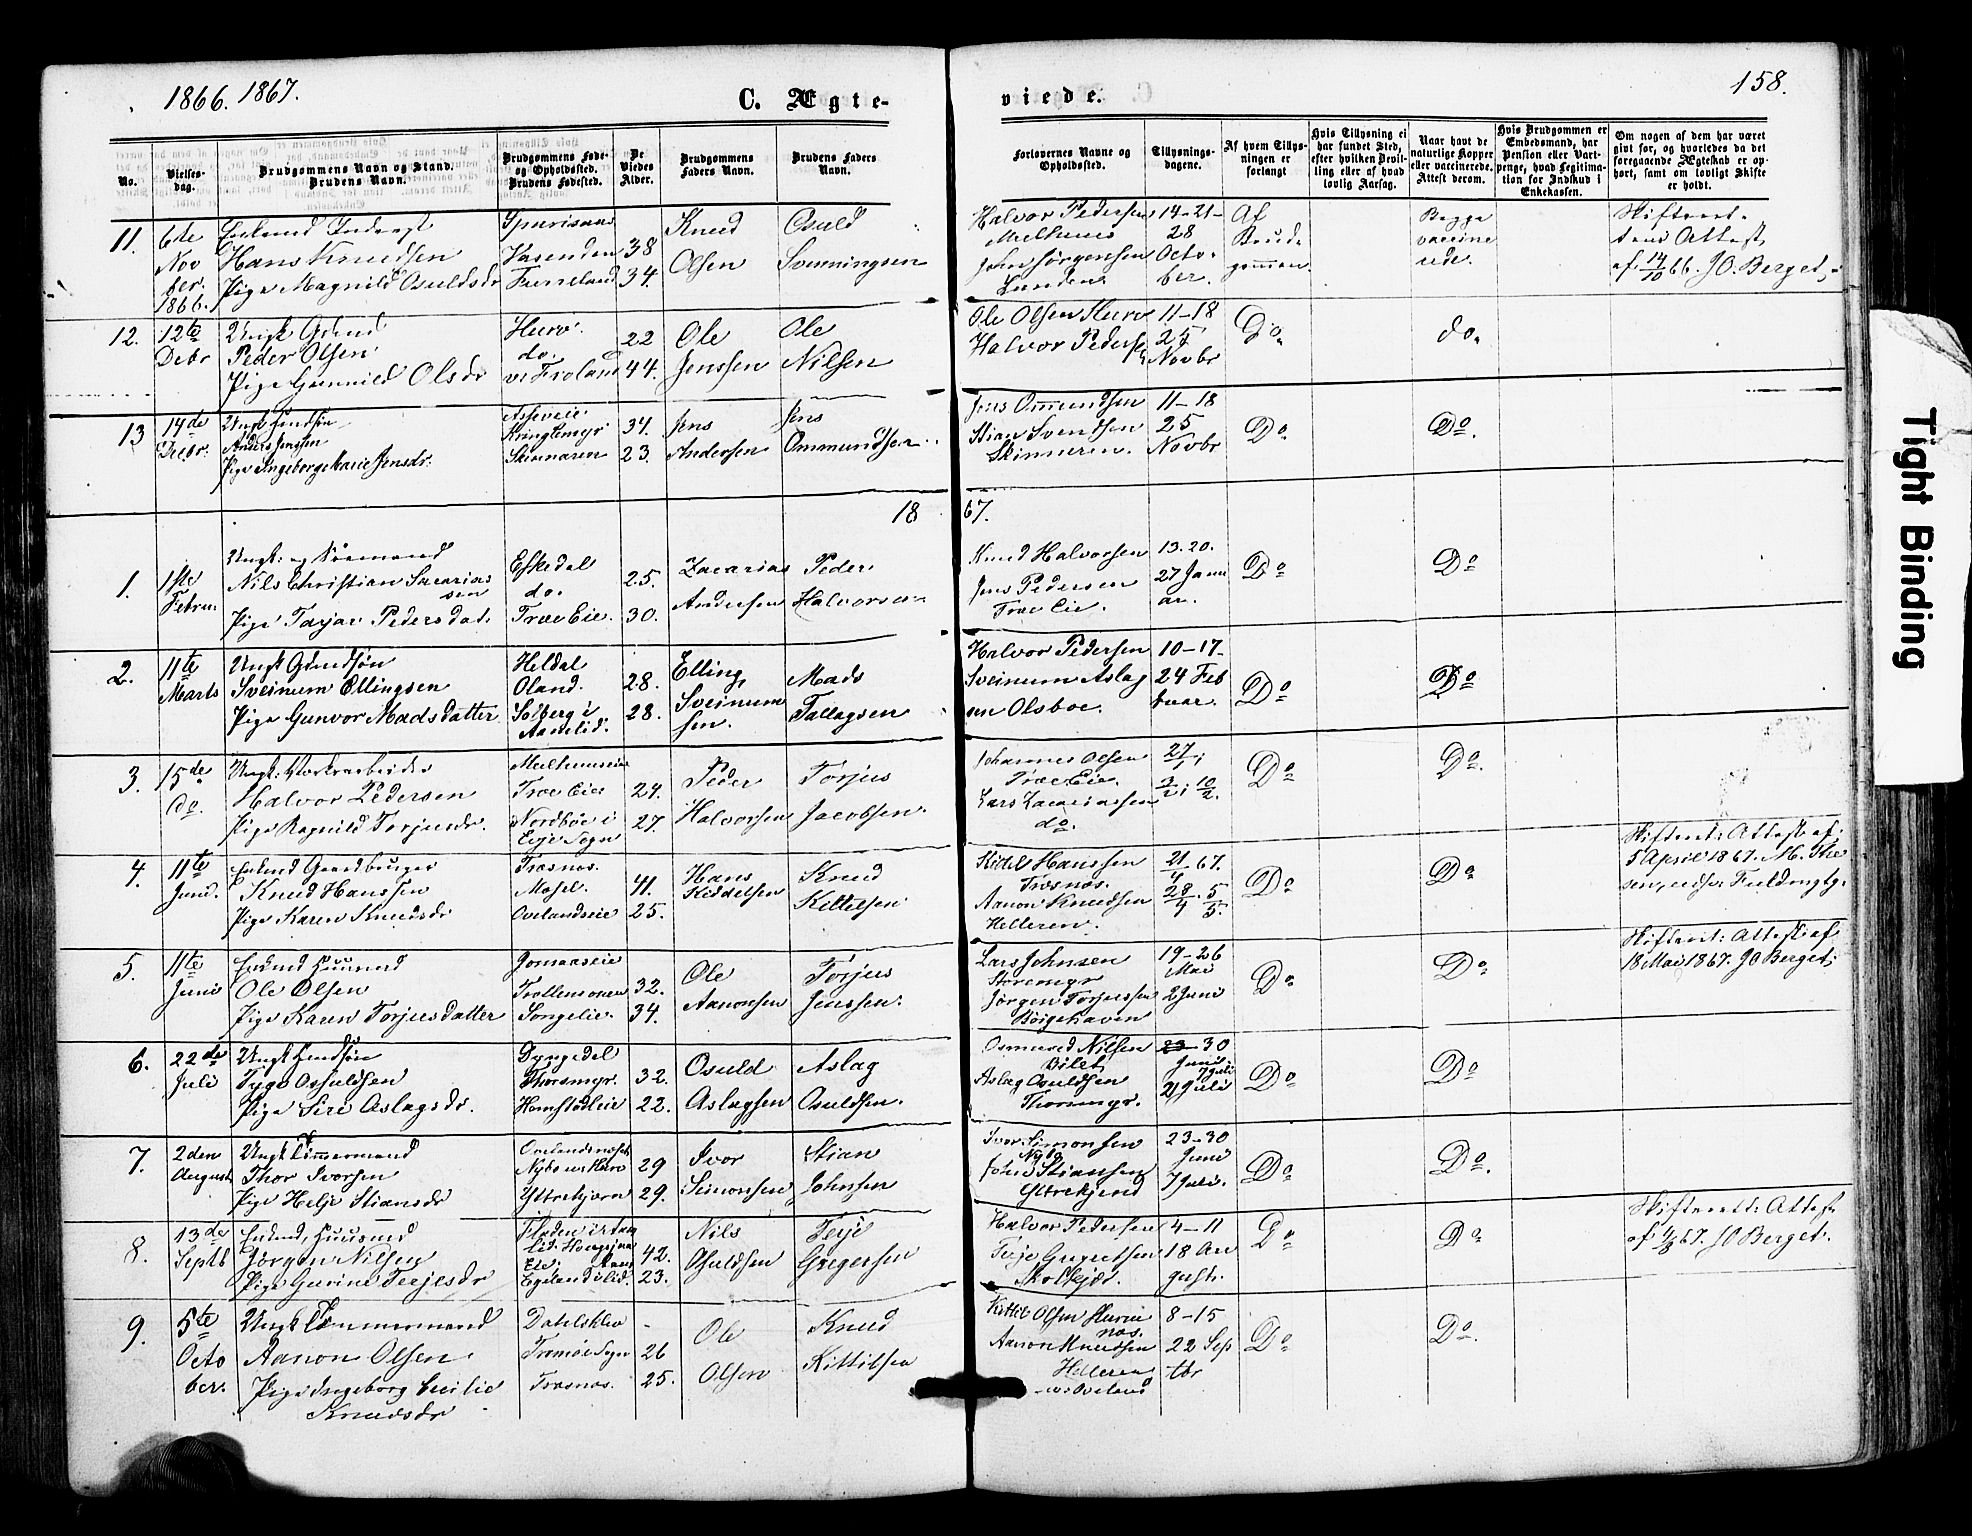 1866. 1867.
C. Ægte-
viede.
158.
No.
Vielses-
dag.
Brudgommens Navn og Stand.
Brudens Navn.
Brudgommens Føde-
og Opholdsted.
Brudens Fødested.
De
Viedes
Alder.
Brudgommens
Faders Navn.
Brudens Faders
Navn.
Forlovernes Navne og
Opholdsted.
Tillysnings-
dagene.
Af hvem Tillys-
ningen er
forlangt
Hvis Tillysning ei
har fundet Sted,
efter hvilken Bevil-
ling eller af hvad
lovlig Aarsag.
Naar havt de
naturlige Kopper
eller vaccinerede.
Attest derom.
Hvis Brudgommen er
Embedsmand, har
Pension eller Vart-
penge, hvad Legitima-
tion for Indskud i
Enkekassen.
Om nogen af dem har været
gift før, og hvorledes da det
foregaaende Ægteskab er op-
hørt, samt om lovligt Skifte
er holdt.
11.
6te
Nov
ber.
1866.
Enkemd Inderst
Hans Knudsen
Pige Magnild Osuldsdr
Vasenden
Furreland
38
34.
Knud
Olsen
Osuld
Svenningsen
Halvor Pedersen
Mælhuus
John Jørgensen
Lunden
14-21-
28
Octo-
ber.
Af
Brud-
gommen.
Begge
vaccine
rede.
Skifteret-
tens Attest
af 14/10 66. JO. Berget.
12.
12te
Debr
Ungk Gdmd
Peder Olsen
Pige Gunnild Olsdr
Hurv.
do.
v. Froland
22
44.
Ole
Jenssen
Ole
Nilsen
Ole Olsen Hurv
Halvor Peders
11-18
25
Novbr
Do
do.
13
14de
Debr.
Ungk Gmdsøn
Anders Jenssen
Pige Ingeborg Marie Jensdr.
Kringlemyr
Skinnaren
34.
23.
Jens
Andersen
Jens
Ommundsen
Jens Ommundsen
Stian Svendsen
Skinneren.
11-18
25
Novbr
Do
Do.
18 67.
1.
1ste
Februa
Ungk: og Sømand
Nils Christian Sacarias
sen
Pige Tarjar Pedersdat.
Eskedal
do.
Træ Eie.
25.
30.
Zacarias
Andersen
Peder
Halvorsen
Knud Halvorsen
Jens Pedersen
Træ Eie.
13.20.
27 Janu
ar.
Do
Do
2.
11te
Marts
Ungk Gmdsøn
Sveinum Ellingsen
Pige Gunvor Madsdatter
Heldal
Oland.
Solberg i
Aamlid.
28.
28.
Elling
Sveinum
sen.
Mads
Tallagsen
Halvor Pedersen
Sveinum Aslag
sen Olsboe.
10-17-
24 Feb
ruar.
Do
Do
3.
15de
do.
Ungk: Værksarbeider
Halvor Pedersen
Pige Ragnild Torjusdr.
Mælhuuseie
Træ Eie
Nordbøe i
Evje Sogn
24.
27.
Peder
Halvorsen
Torjus
Jacobsen
Johannes Olsen
Træ Eie.
Lars Zacariassen
do.
27/1;
3/2; 10/2.
Do
Do.
4.
11te
Juni.
Enkemd Gaardbruger
Knud Hanssen
Pige Karen Knudsdr
Træsnæs.
Mosel.
Ovelandseie
41.
25.
Hans
Kiddelsen
Knud
Kittelsen
Kidel Hanssen
Træsnæs.
Aanon Knudsen
Helleren.
21/4 67.
28/4. 5/5.
Do
Do
Skifteret: Attest af
5 April 1867. M. The
sen, edsv Fuldmgtg.
5.
11te
Juni
Enkmd Huusmd
Ole Olsen
Pige Karen Torjusdatter
Jomaaseie
Trollemoren
Songelie.
32.
34.
Ole
Aanonsen
Torjus
Jenssen.
Lars Johnsen
Storemyr
Jørgen Torjussen
Børgehaven
19-26
Mai
2 Juni
Do
Do
Skifteret: Attest af
18 Mai 1867. JO Berget.
6.
22de
Juli
Ungk Gmdsøn
Tyge Osuldsen
Pige Siri Aslagsdr.
Dyngedel
Thorsmyr.
Homstødleie
32.
22.
Osuld
Aslagsen
Aslag
Osuldsen.
Osmund Nilsen
Bilet
Aslag Osuldsen
Thorsmyr.
23-30
Juni
7 Juli
21 Juli
Do
Do
7.
2den
August
Ungk Tømmermand
Thor Ivorsen
Pige Helje Stiansdr
Ovelandsmosen
Nybo u Hurv
Yttrekjærn
29
29.
Ivor
Simonsen
Stian
Johnsen
Ivor Simonsen
Nybo
John Stianssen
Yttrekjend
23-30
Juni
7 Juli.
Do
Do.
8.
13de
Septb
Enkmd, Huusmd
Jørgen Nilsen
Pige Gurine Terjesdr
42.
23.
Nils
Osuldsen
Terje
Gregersen
Halvor Pedersen
Terje Gregersen
Molskjær.
4-11
18 Au
gust.
Do
Do
Skifteret: Attest
af 67. JO Berget.
9.
5te
Octo
ber.
Ungk Tømmermand
Aanon Olsen
Pige Ingeborg Cecilie
Knudsdr
Dalelsklev
Tromøe Sogn
Træsnæs.
26
25.
Ole
Olsen
Knud
Kittilsen
Kittil Olsen Hurve
næs.
Aanon Knudsen
Helleren
v: Oveland
8-15
22 Sep
tbr
Do
Do.
Tight Binding